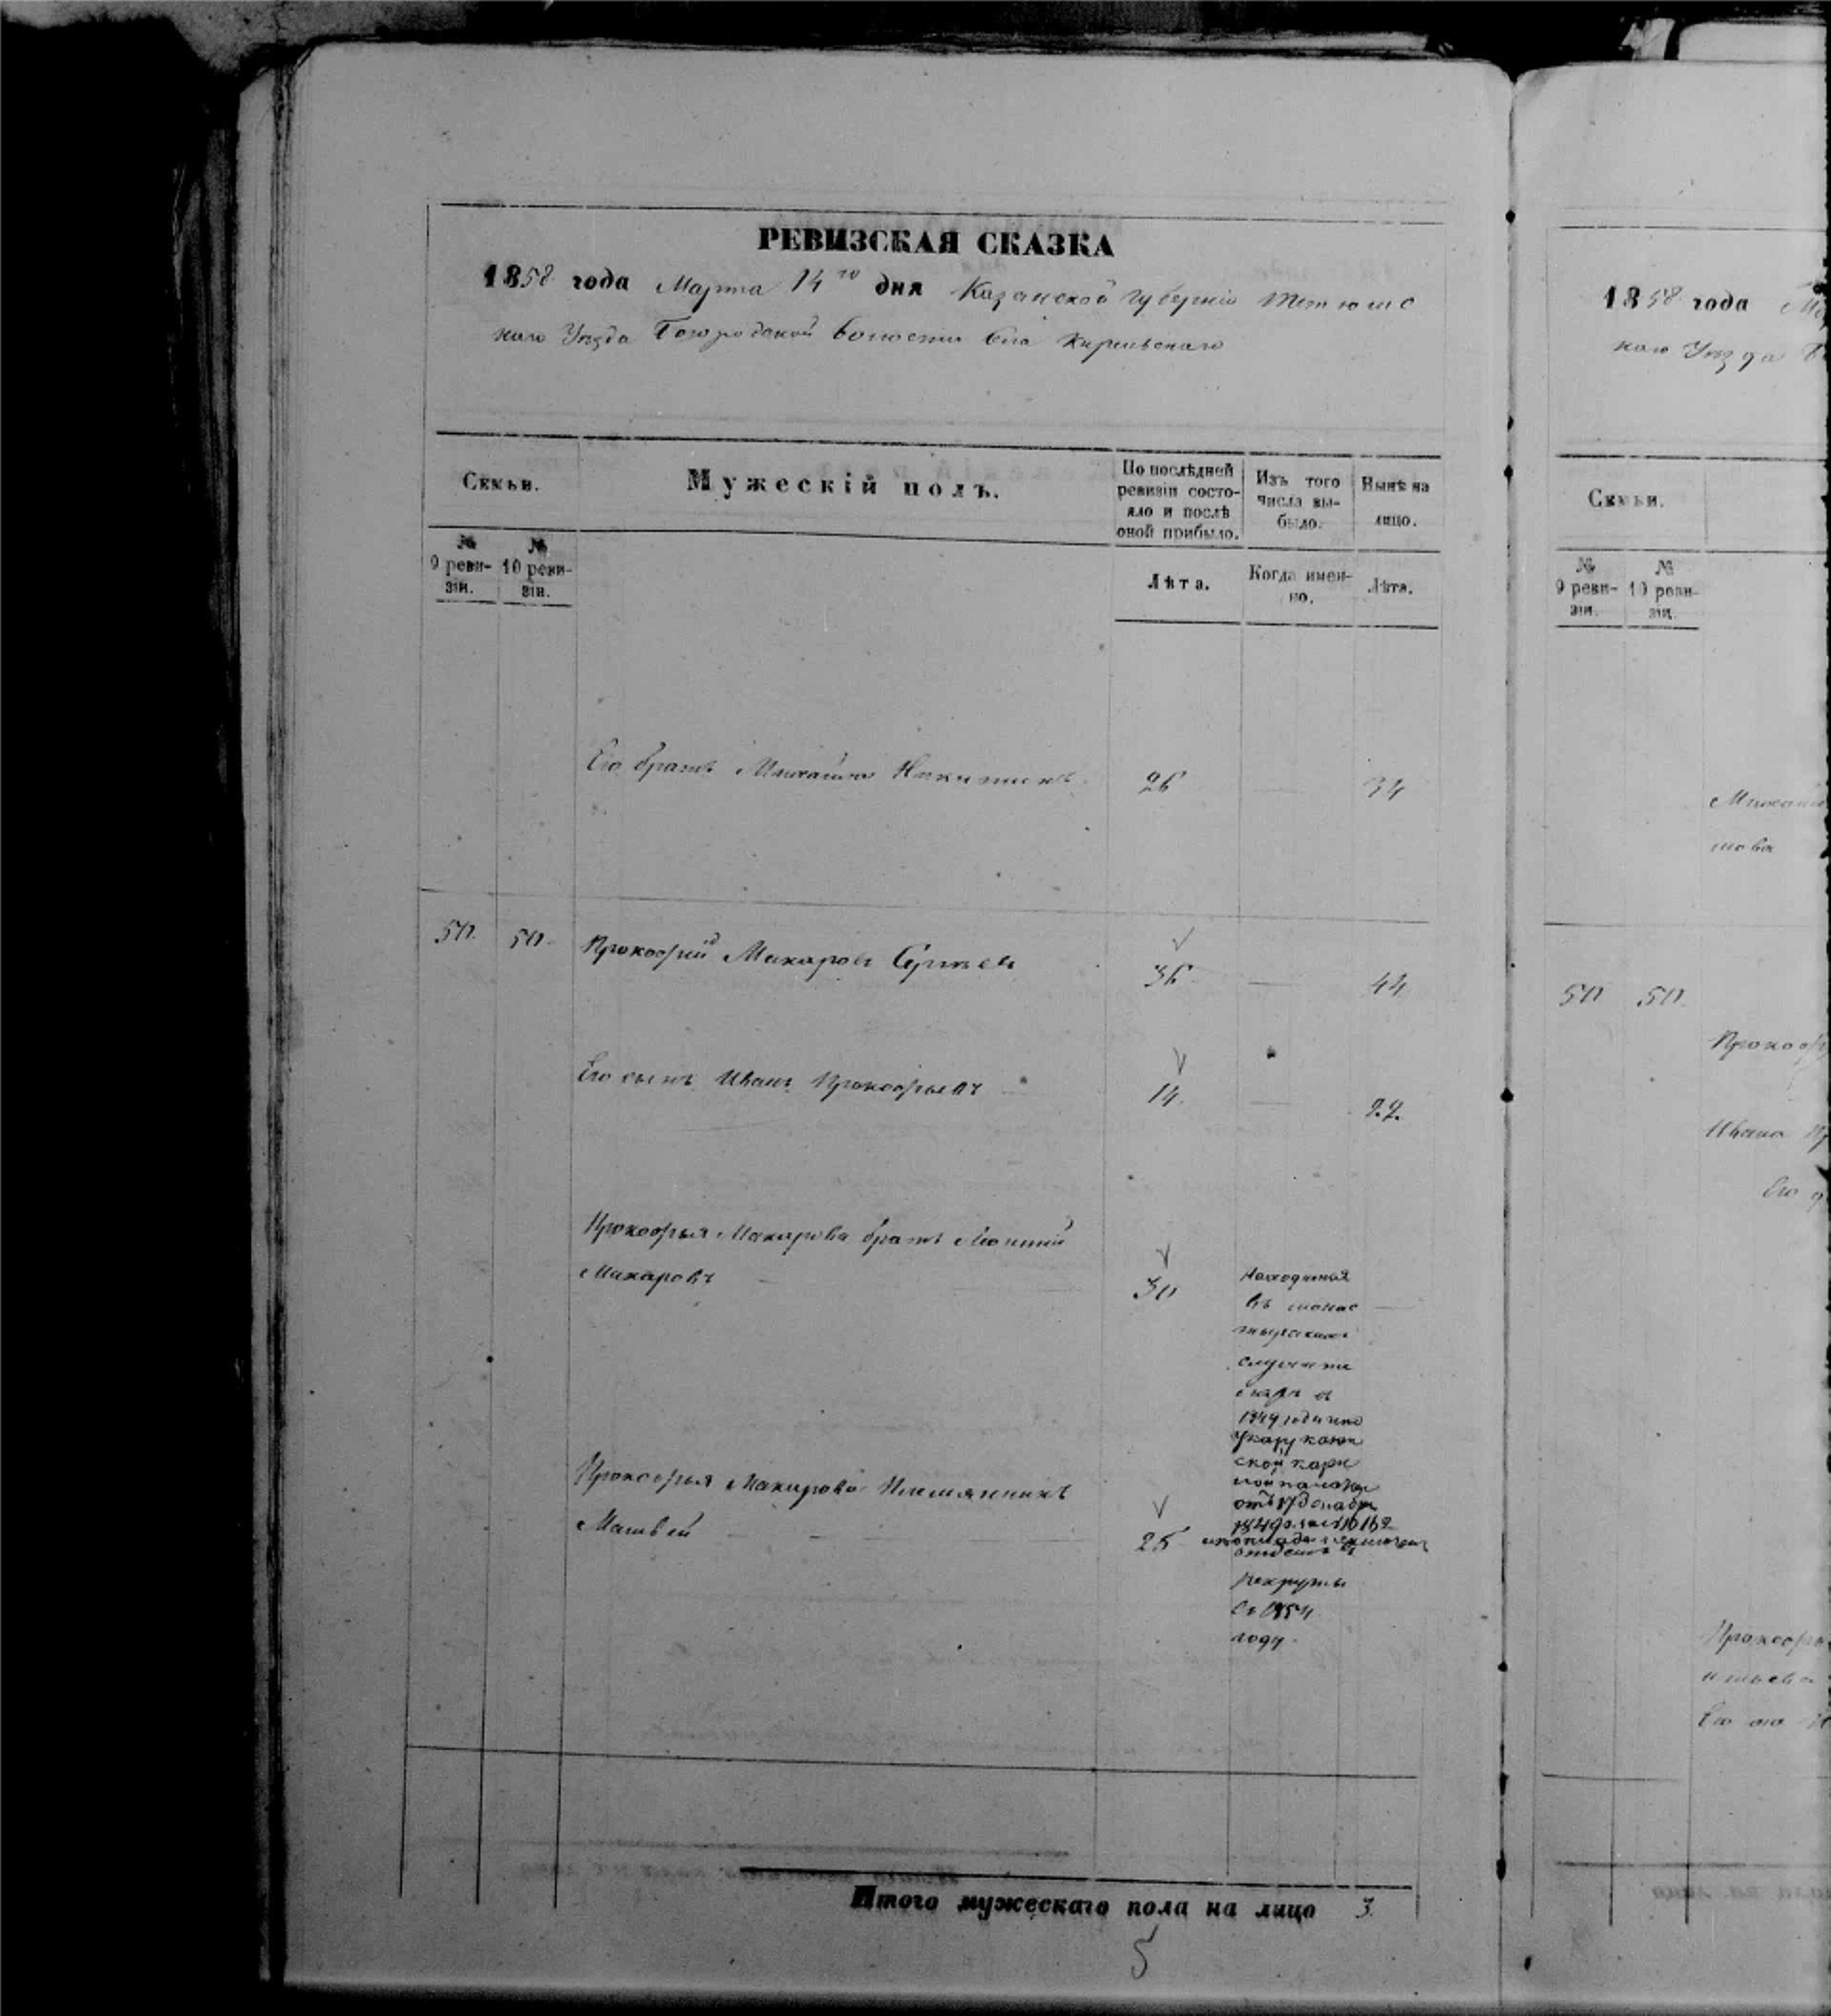 РЕВИЗСКАЯ СКАЗКА
1858 года Марта 14го дня Казанской губернии Тетюшс
каго Уѣзда Богородской волости села Кирельскаго
Семьи.
Мужескій полъ.
По послѣдней
ревизіи состо-
яло и послѣ
оной прибыло.
Изъ того
числа вы-
было.
Нынѣ на
лицо.
№
9 реви-
зіи.
№
10 реви-
зіи.
Лѣта.
Когда имен-
но.
Лѣта.
Его братъ Михайло Никитинъ 26 — 34
50. 50. Прокофий Макаровъ Сергѣевъ 36 — 44
Его сынъ Иванъ Прокофьевъ 14. — 22.
Прокофья Макарова братъ
Макаровъ 30
находится
въ монас
тырскихъ
служите
ляхъ съ
1849 года по
указу казан
ской казен
ной палаты
отъ 17 декабря
Прокофья Макарова Племянникъ
Матвей 25
отданъ въ
рекруты
въ 1854
году.
Итого мужескаго пола на лицо 3.
5
1858 года
каго Уѣзда
Семьи.
№
9 реви-
зіи.
№
10 реви-
зіи.
50 50.
Ивана
Его